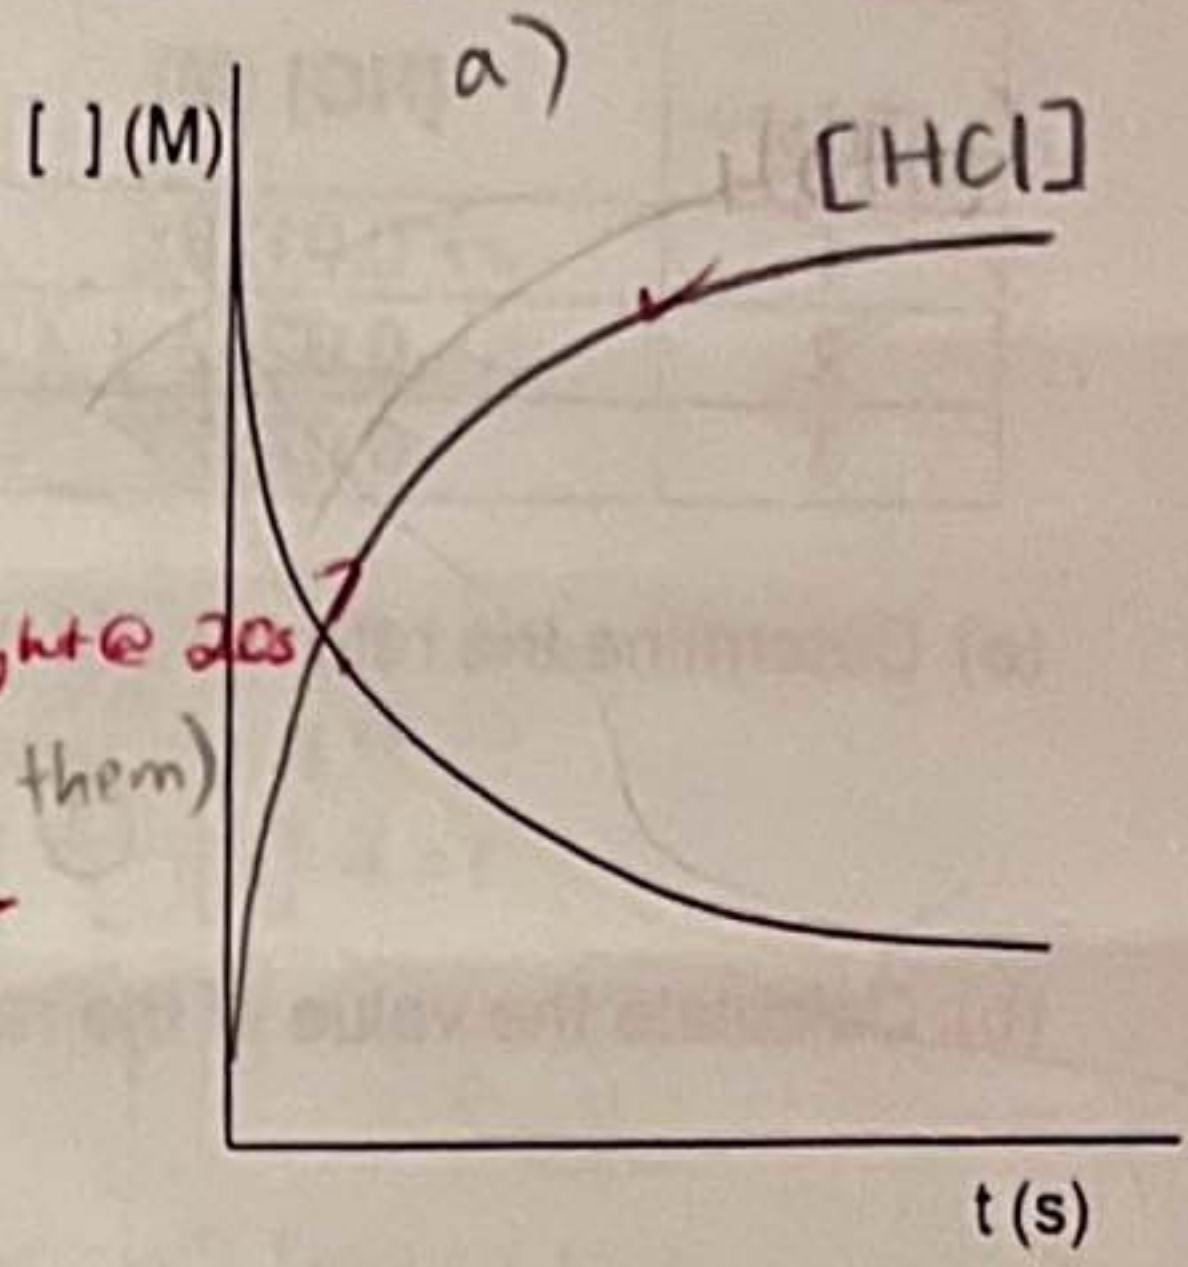 a)
[ ] (M)
[HCl]
ht@ 20s
them)
t (s)